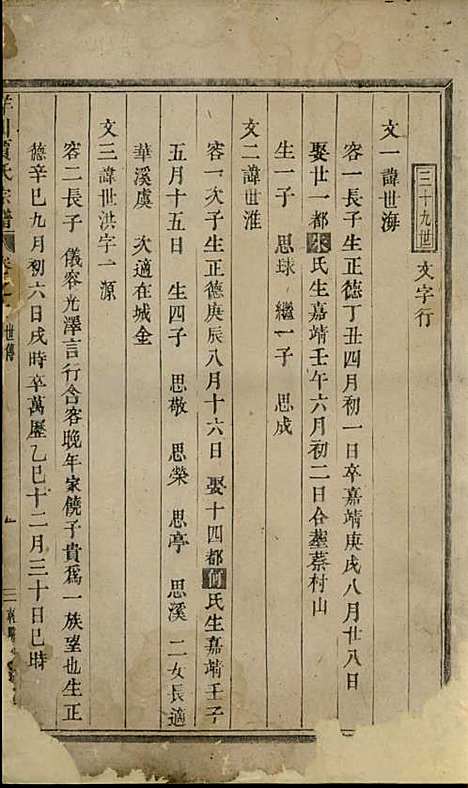 三十九世
文字行
文一諱世海
容一長子生正德丁丑四月初一日卒嘉靖庚戌八月廿八日
娶廿一都宋氏生嘉靖壬午六月初二日合塟蔡村山
生一子　思球　繼一子　思成
文二諱世淮
容一次子生正德庚辰八月十六日　娶十四都何氏生嘉靖壬子
五月十五日　生四子　思敬　思榮　思亭　思溪　二女長適
華溪虞　次適在城金
文三諱世洪字一源
容二長子　儀容光澤言行含容晚年家饒子貴爲一族望也生正
德辛巳九月初六日戌時卒萬歷乙巳十二月三十日巳時
氏宗譜
世傳